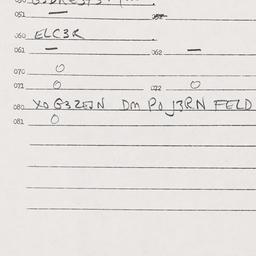 051 — 052
060 ELC3R
061 — 062 —
070 O
071 O 072 O
080 XO G3ZEJN DM PO J3RN FELD
081 O